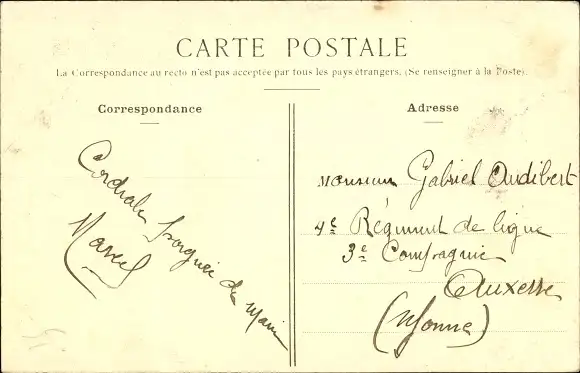 CARTE POSTALE
La Correspondance au recto n'est pas acceptée par tous les pays étrangers. (Se renseigner à la Poste).
Correspondance
Cordiale poignée de main
Marcel
Adresse
Monsieur Gabriel Audibert
4e Régiment de ligne
3e Compagnie
Auxerre
(Yonne)